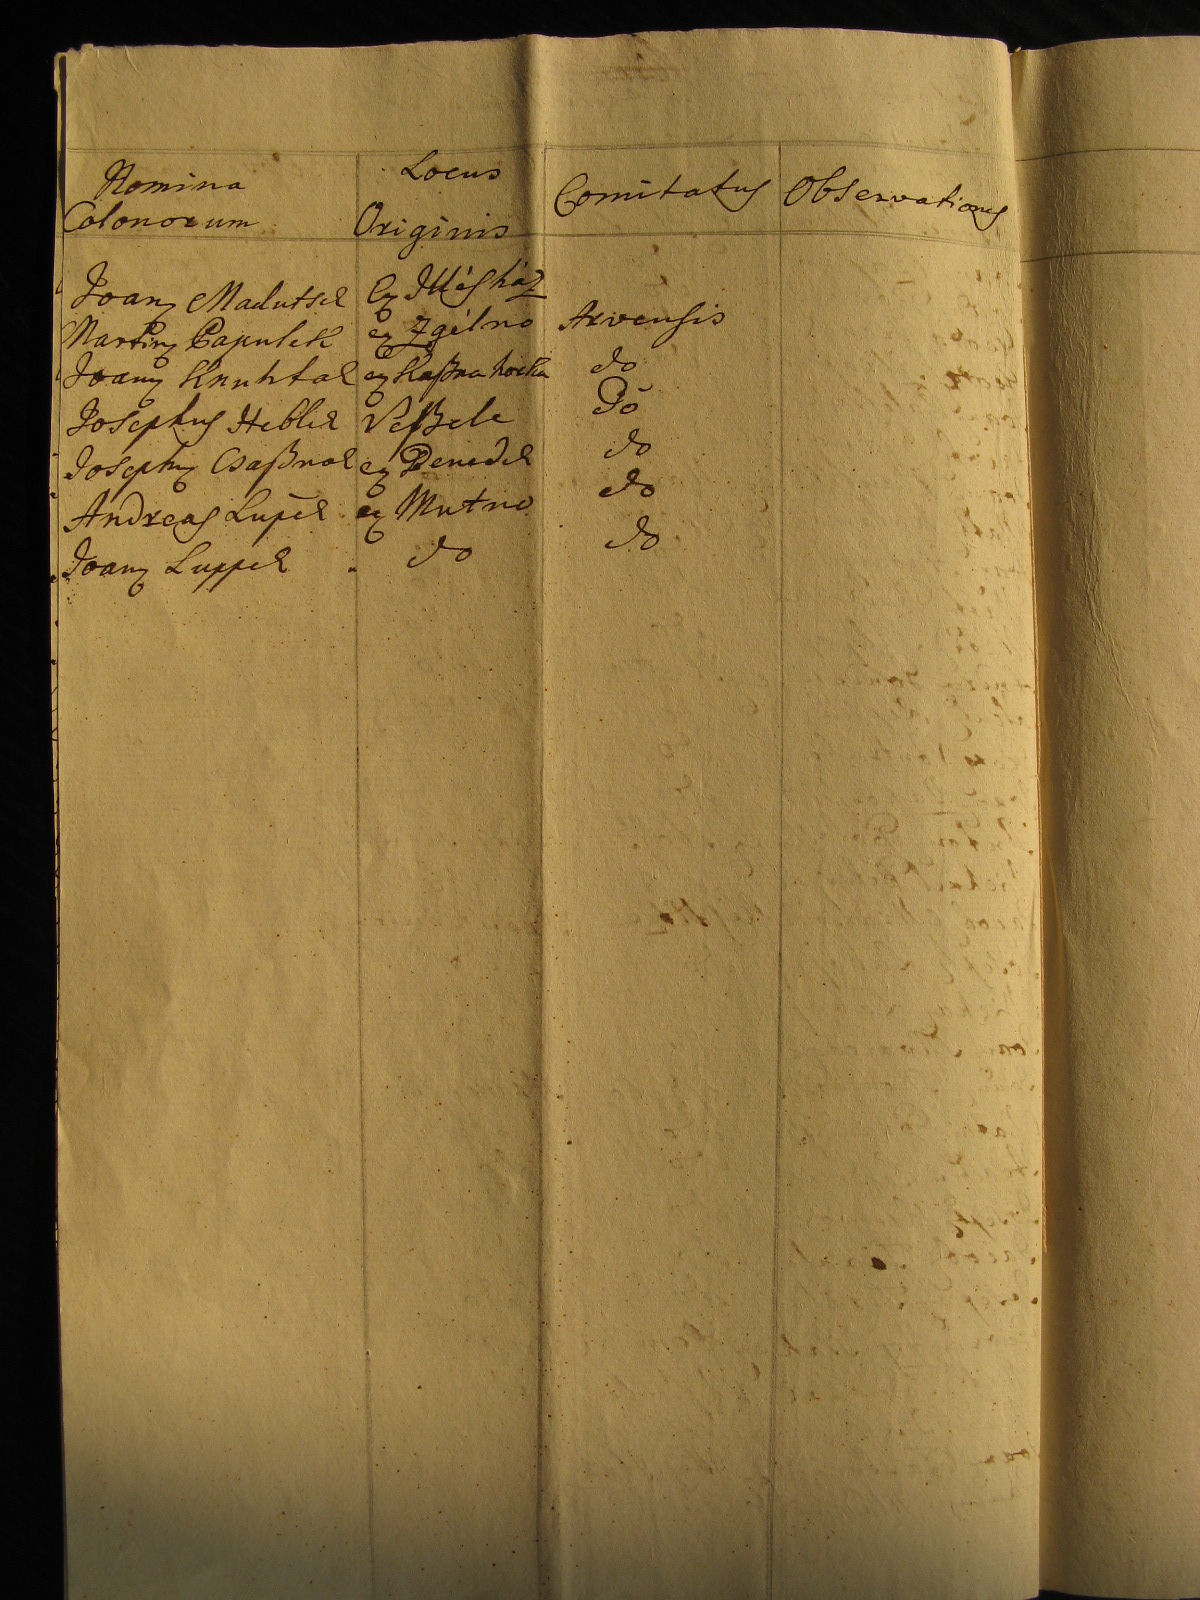 Nomina Colonorum Locus Originis Comitatus Observationes
Joanes Madutsek Ex Illésház
Martinus Papulek ex Zgélno Arvensis
Joanes Knuhtal ex Kaßna horka do
Josephus Heblek Veßele Do
Josephus Csaßnak ex Benedek do
Andreas Lupek ex Mutno do
Joanes Luppek do do